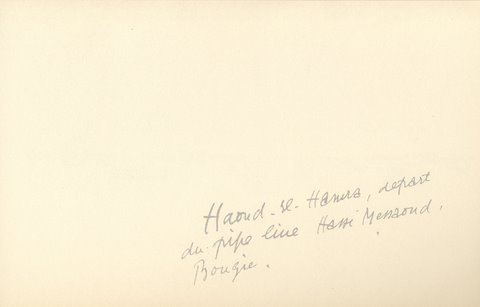 Haoud-el-Hamra, départ
du pipe line Hassi Messaoud.
Bougie.